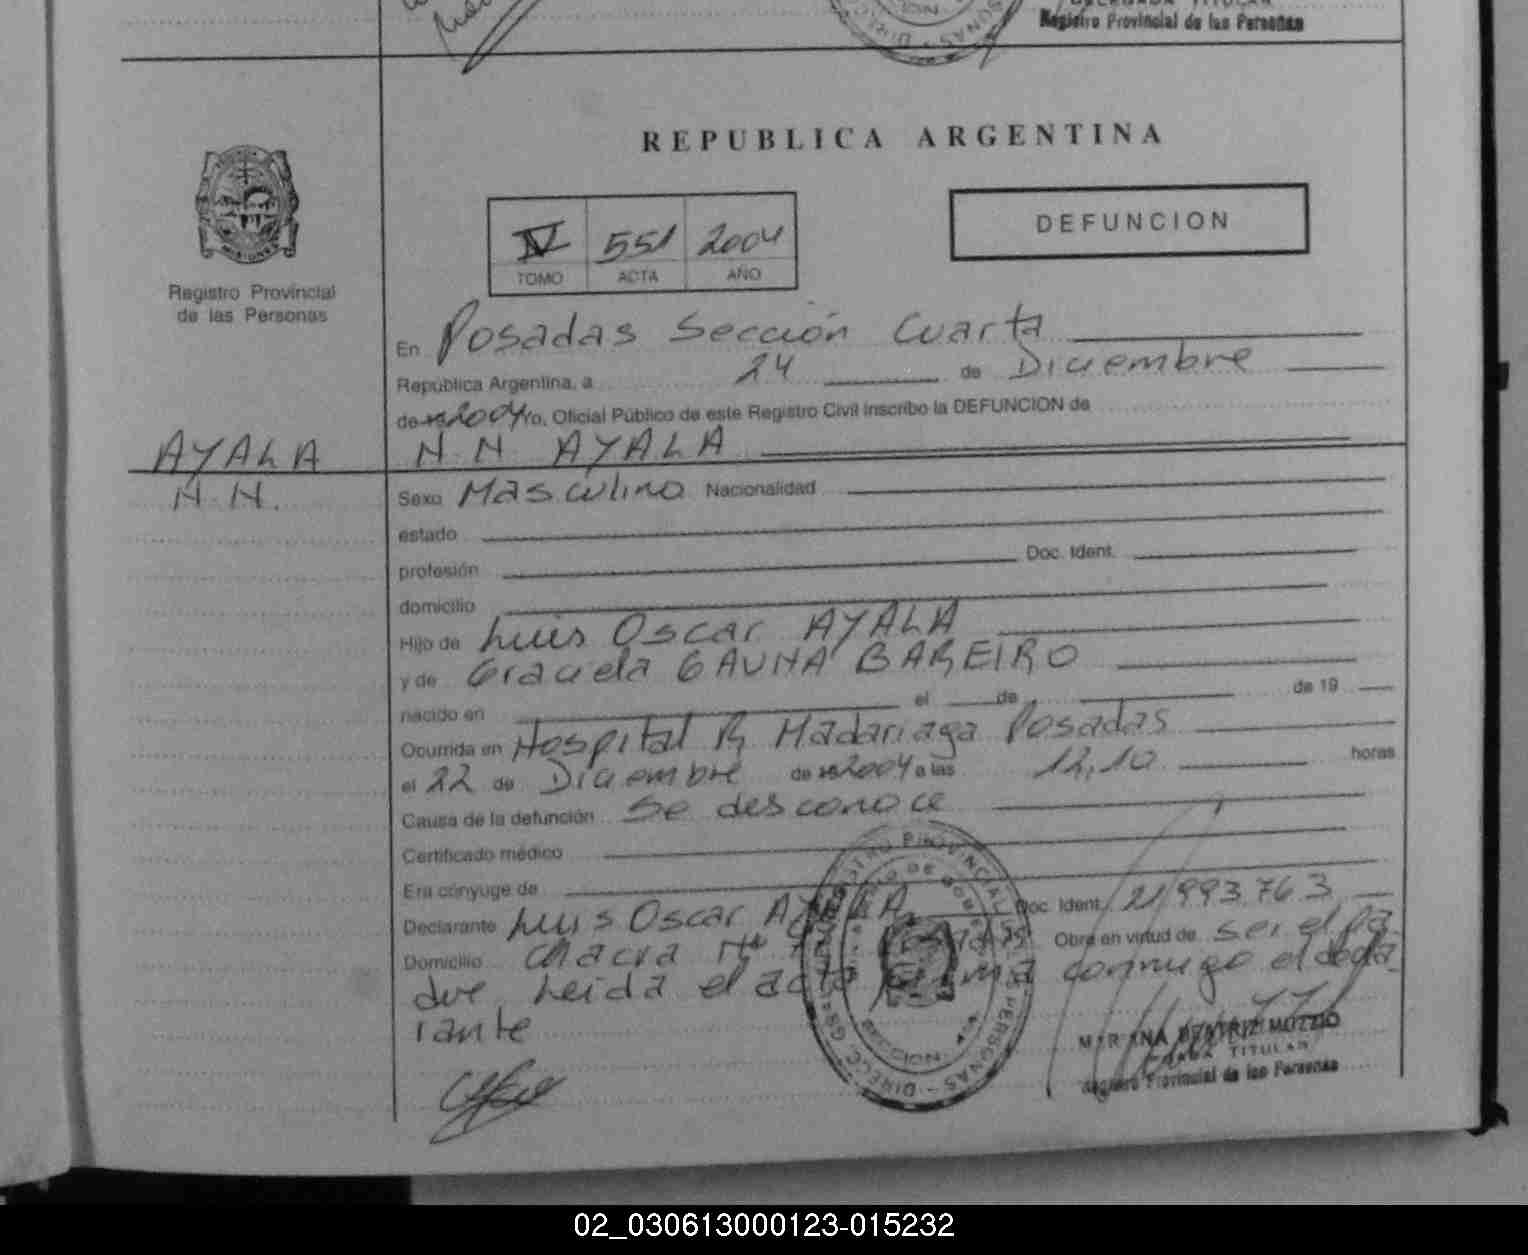 Registro Provincial de las Personas
REPUBLICA ARGENTINA
IV 551 2004
TOMO ACTA AÑO
DEFUNCION
Registro Provincial
de las Personas
En Posadas Sección Cuarta
República Argentina, a 24 de Diciembre
de 19 2004 Yo, Oficial Público de este Registro Civil inscribo la DEFUNCION de
AYALA N N AYALA
N.N.
Sexo Masculino Nacionalidad
estado
profesión Doc. Ident.
domicilio
Hijo de Luis Oscar AYALA
y de Graciela GAUNA BAREIRO
nacido en el de de 19
Ocurrida en Hospital R Madariaga Posadas
el 22 de Diciembre de 19 2004 a las 12,10 horas
Causa de la defunción Se desconoce
Certificado médico
Era cónyuge de
Declarante Luis Oscar AYALA Doc. Ident. 21993.763
Domicilio Chacra Nº Posadas Obra en virtud de ser el pa
dre Leida el acta firma conmigo el decla
rante
MIRIANA BEATRIZ MUZZIO
TITULAR
Registro Provincial de las Personas
02_030613000123-015232